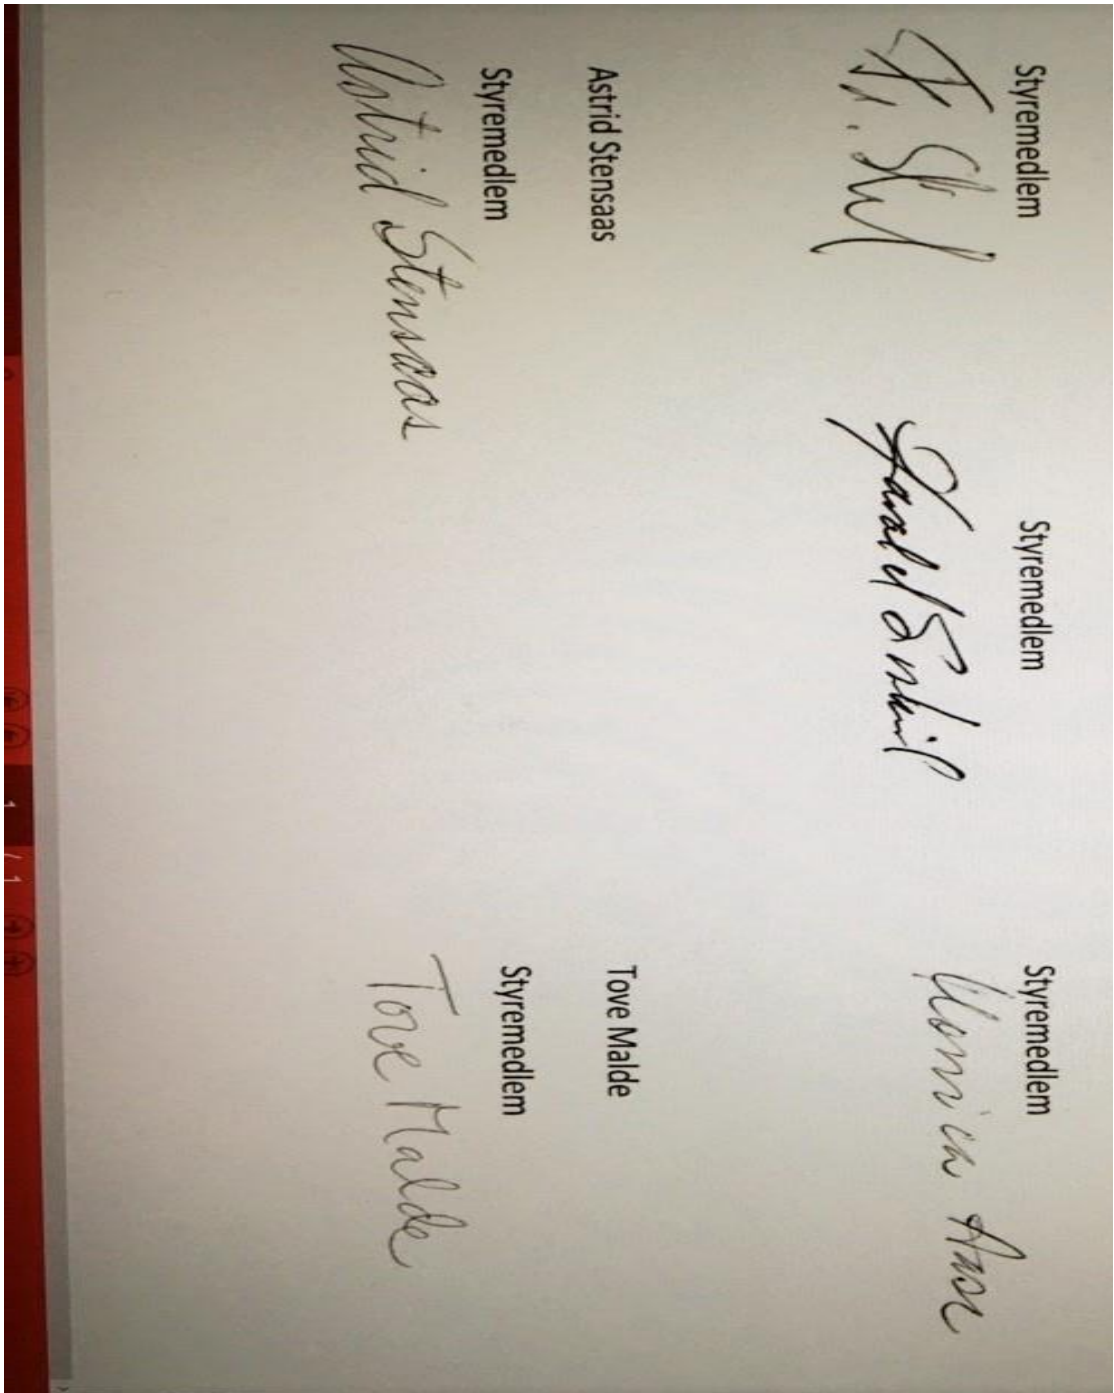 Styremedlem Styremedlem Styremedlem
Harald Monica
Astrid Stensaas Tove Malde
Styremedlem Styremedlem
Astrid Stensaas Tove Malde
1 / 1